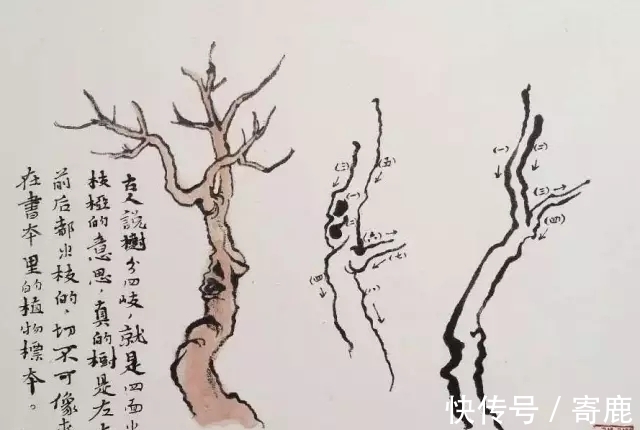 古人說樹分四歧，就是四面出
枝椏的意思，真的樹是左
前后都出枝的，切不可像
在書本里的植物標本。
(三)
(五)
(一)
(二)
(六)
(七)
(四)
(一)
(二)
(三)
(四)
快传号 / 寄鹿